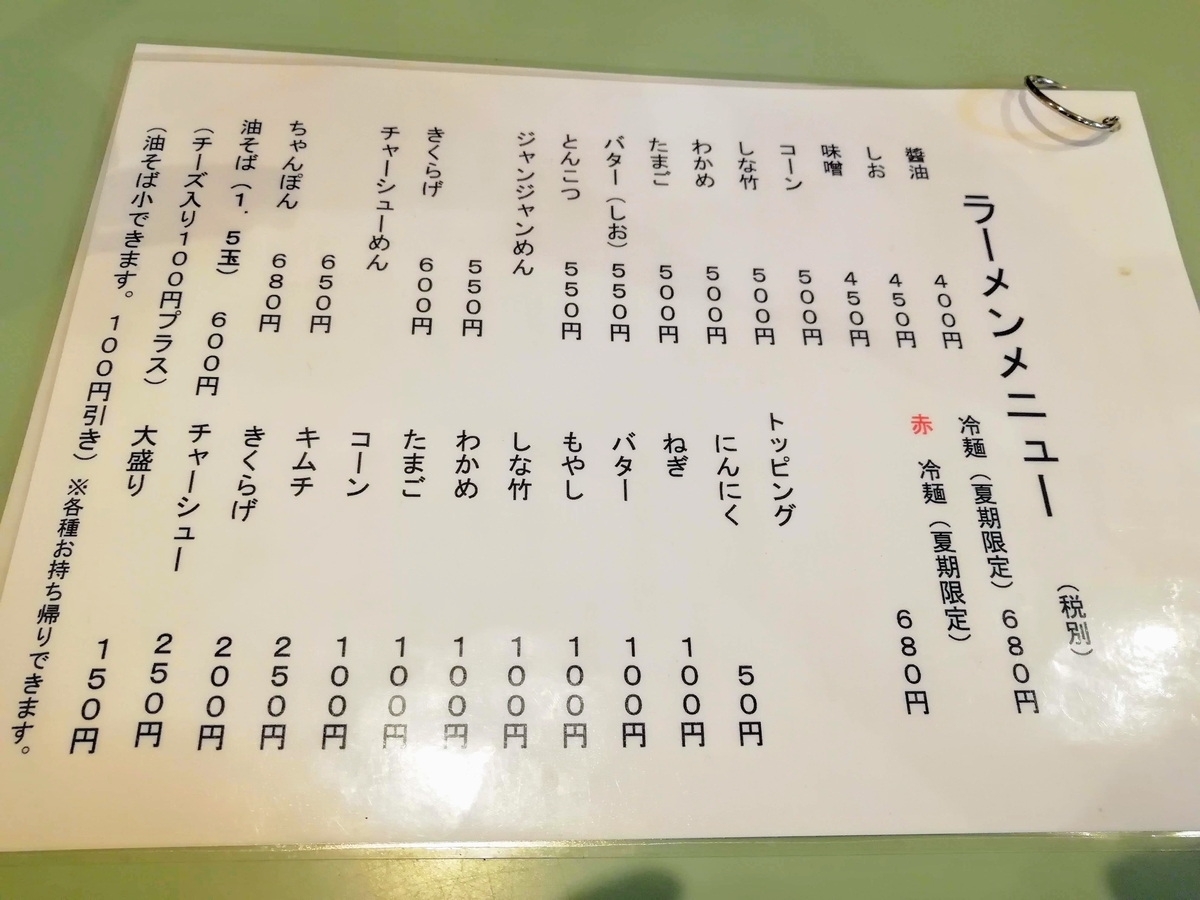 ラーメンメニュー （税別）
醬油 ４００円
しお ４５０円
味噌 ４５０円
コーン ５００円
しな竹 ５００円
わかめ ５００円
たまご ５００円
バター（しお） ５５０円
とんこつ ５５０円
ジャンジャンめん ５５０円
きくらげ ６００円
チャーシューめん ６５０円
ちゃんぽん ６８０円
油そば（１．５玉） ６００円
（チーズ入り１００円プラス）
（油そば小できます。１００円引き）※各種お持ち帰りできます。
冷麺（夏期限定）６８０円
赤 冷麺（夏期限定） ６８０円
トッピング
にんにく ５０円
ねぎ １００円
バター １００円
もやし １００円
しな竹 １００円
わかめ １００円
たまご １００円
コーン １００円
キムチ ２５０円
きくらげ ２００円
チャーシュー ２５０円
大盛り １５０円